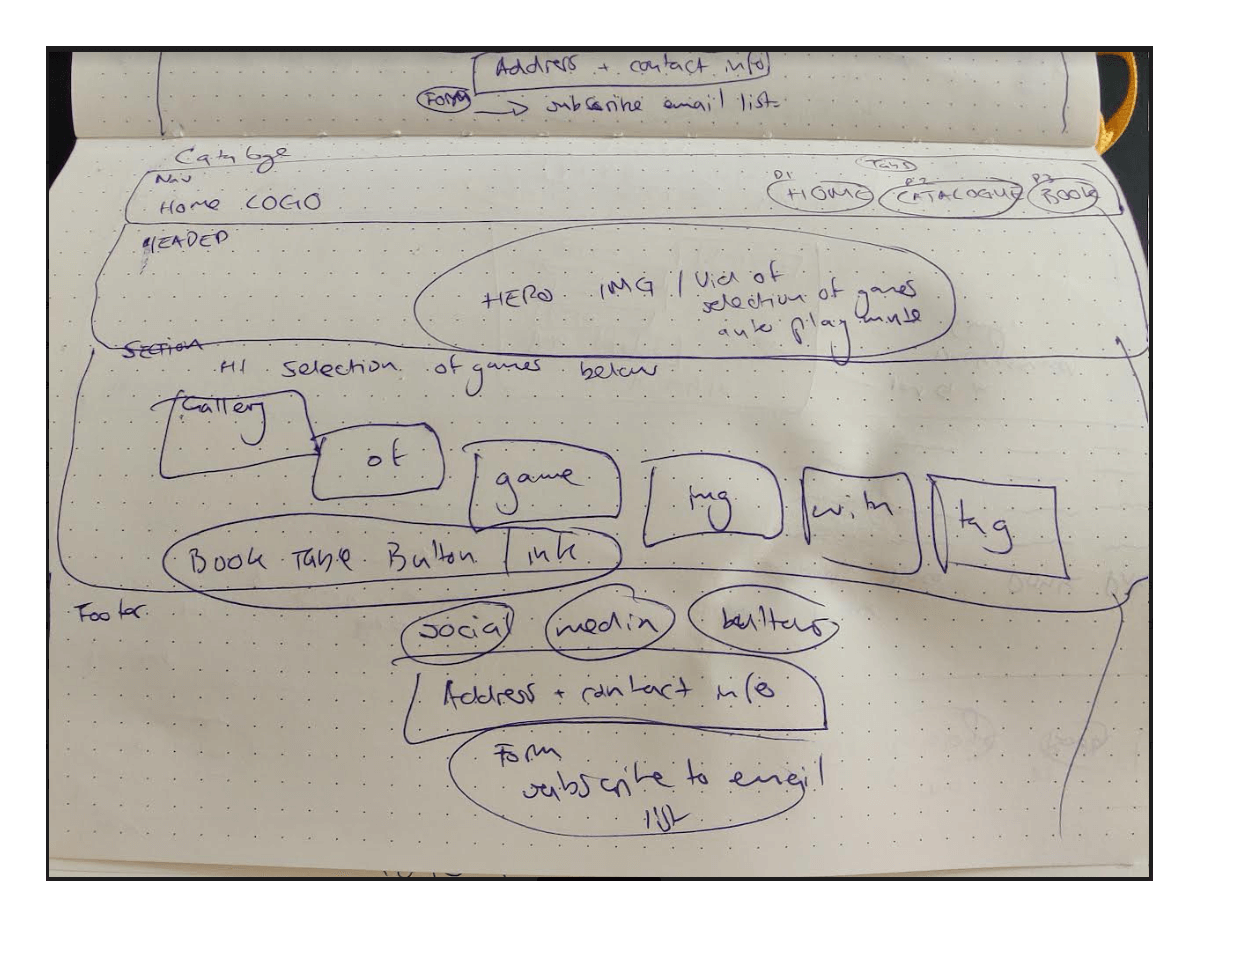 Address + contact info
Form → subscribe email list
Catalogue
Nav
Home LOGO
Tabs
P1 P2 P3
HOME CATALOGUE BOOK
HEADER
HERO IMG / Vid of
selection of games
auto play mute
SECTION
H1 selection of games below
Gallery of game img with tag
Book Table Button / link
Footer
social media buttons
Address + contact info
Form
subscribe to email
list